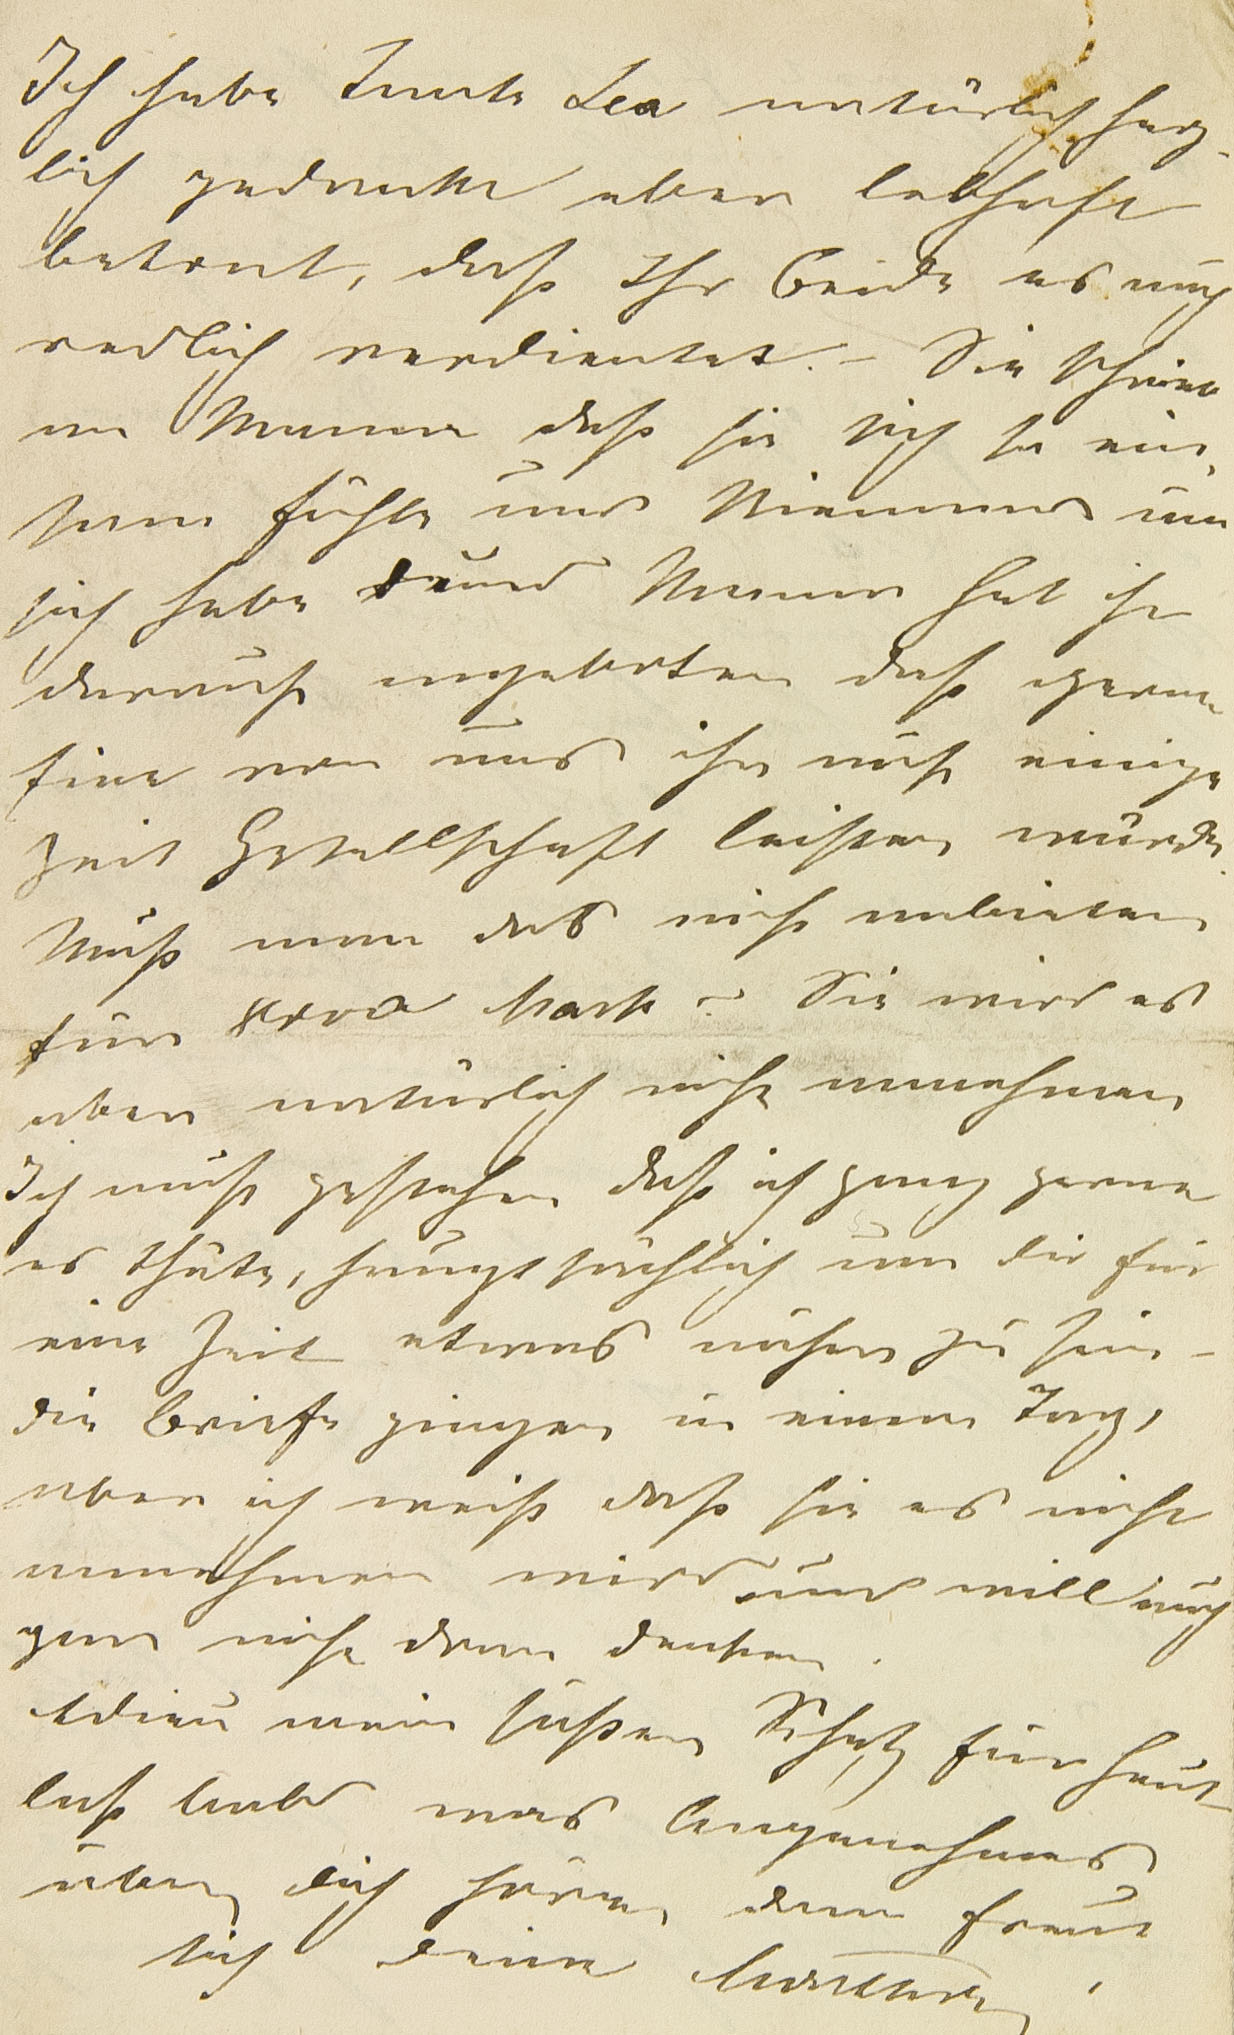 Ich habe Tante Lea natürlich herz-
lich gedankt aber lebhaft
betont, daß Ihr Beide es auch
redlich verdientet. – Sie schrieb
an Mama daß sie sich so ein-
sam fühle und Niemand um
sich habe und Mama hat ihr
darauf angeboten daß gerne
Eine von uns ihr auf einige
Zeit Gesellschaft leisten würde.
Muß man das nicht anbieten
für Mark? Sie wird es
aber natürlich nicht annehmen
Ich muß gestehen daß ich ganz gerne
es thäte, hauptsächlich um dir für
eine Zeit etwas näher zu sein –
die Briefe gingen in einem Tag,
aber ich weiß daß sie es nicht
annehmen wird und will auch
gar nicht dran denken.
Adieu mein süßer Schatz für heut-
laß bald was Angenehmes
über dich hören, dann freut
sich deine